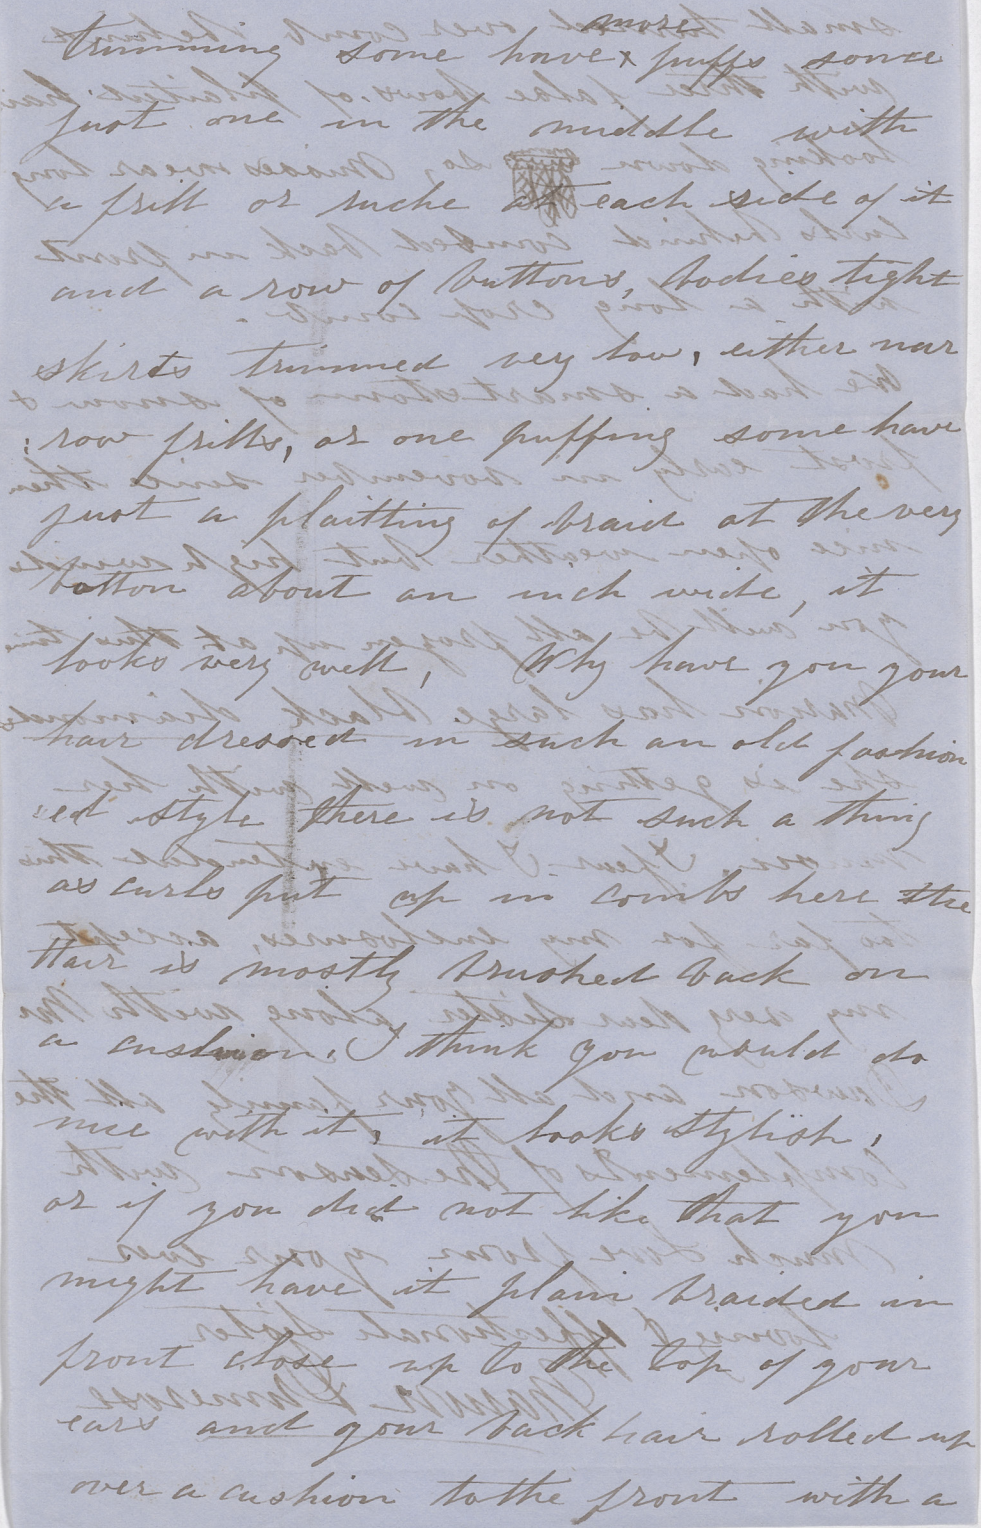 trimming some have x more puffs some
just one in the middle with
a frill or ruche at each side of it
and a row of buttons, bodies tight
skirts trimmed very low, either nar
row frills, or one puffing some have
just a plaitting of braid at the very
botton about an inch wide, it
looks very well, Why have you your
hair dressed in such an old fashion
ed style there is not such a thing
as curls put up in combs here the
Hair is mostly brushed back on
a cushion. I think you would do
nice with it, it looks stylish,
or if you did not like that you
might have it plain braided in
front close up to the top of your
ears and your back hair rolled up
over a cushion to the front with a